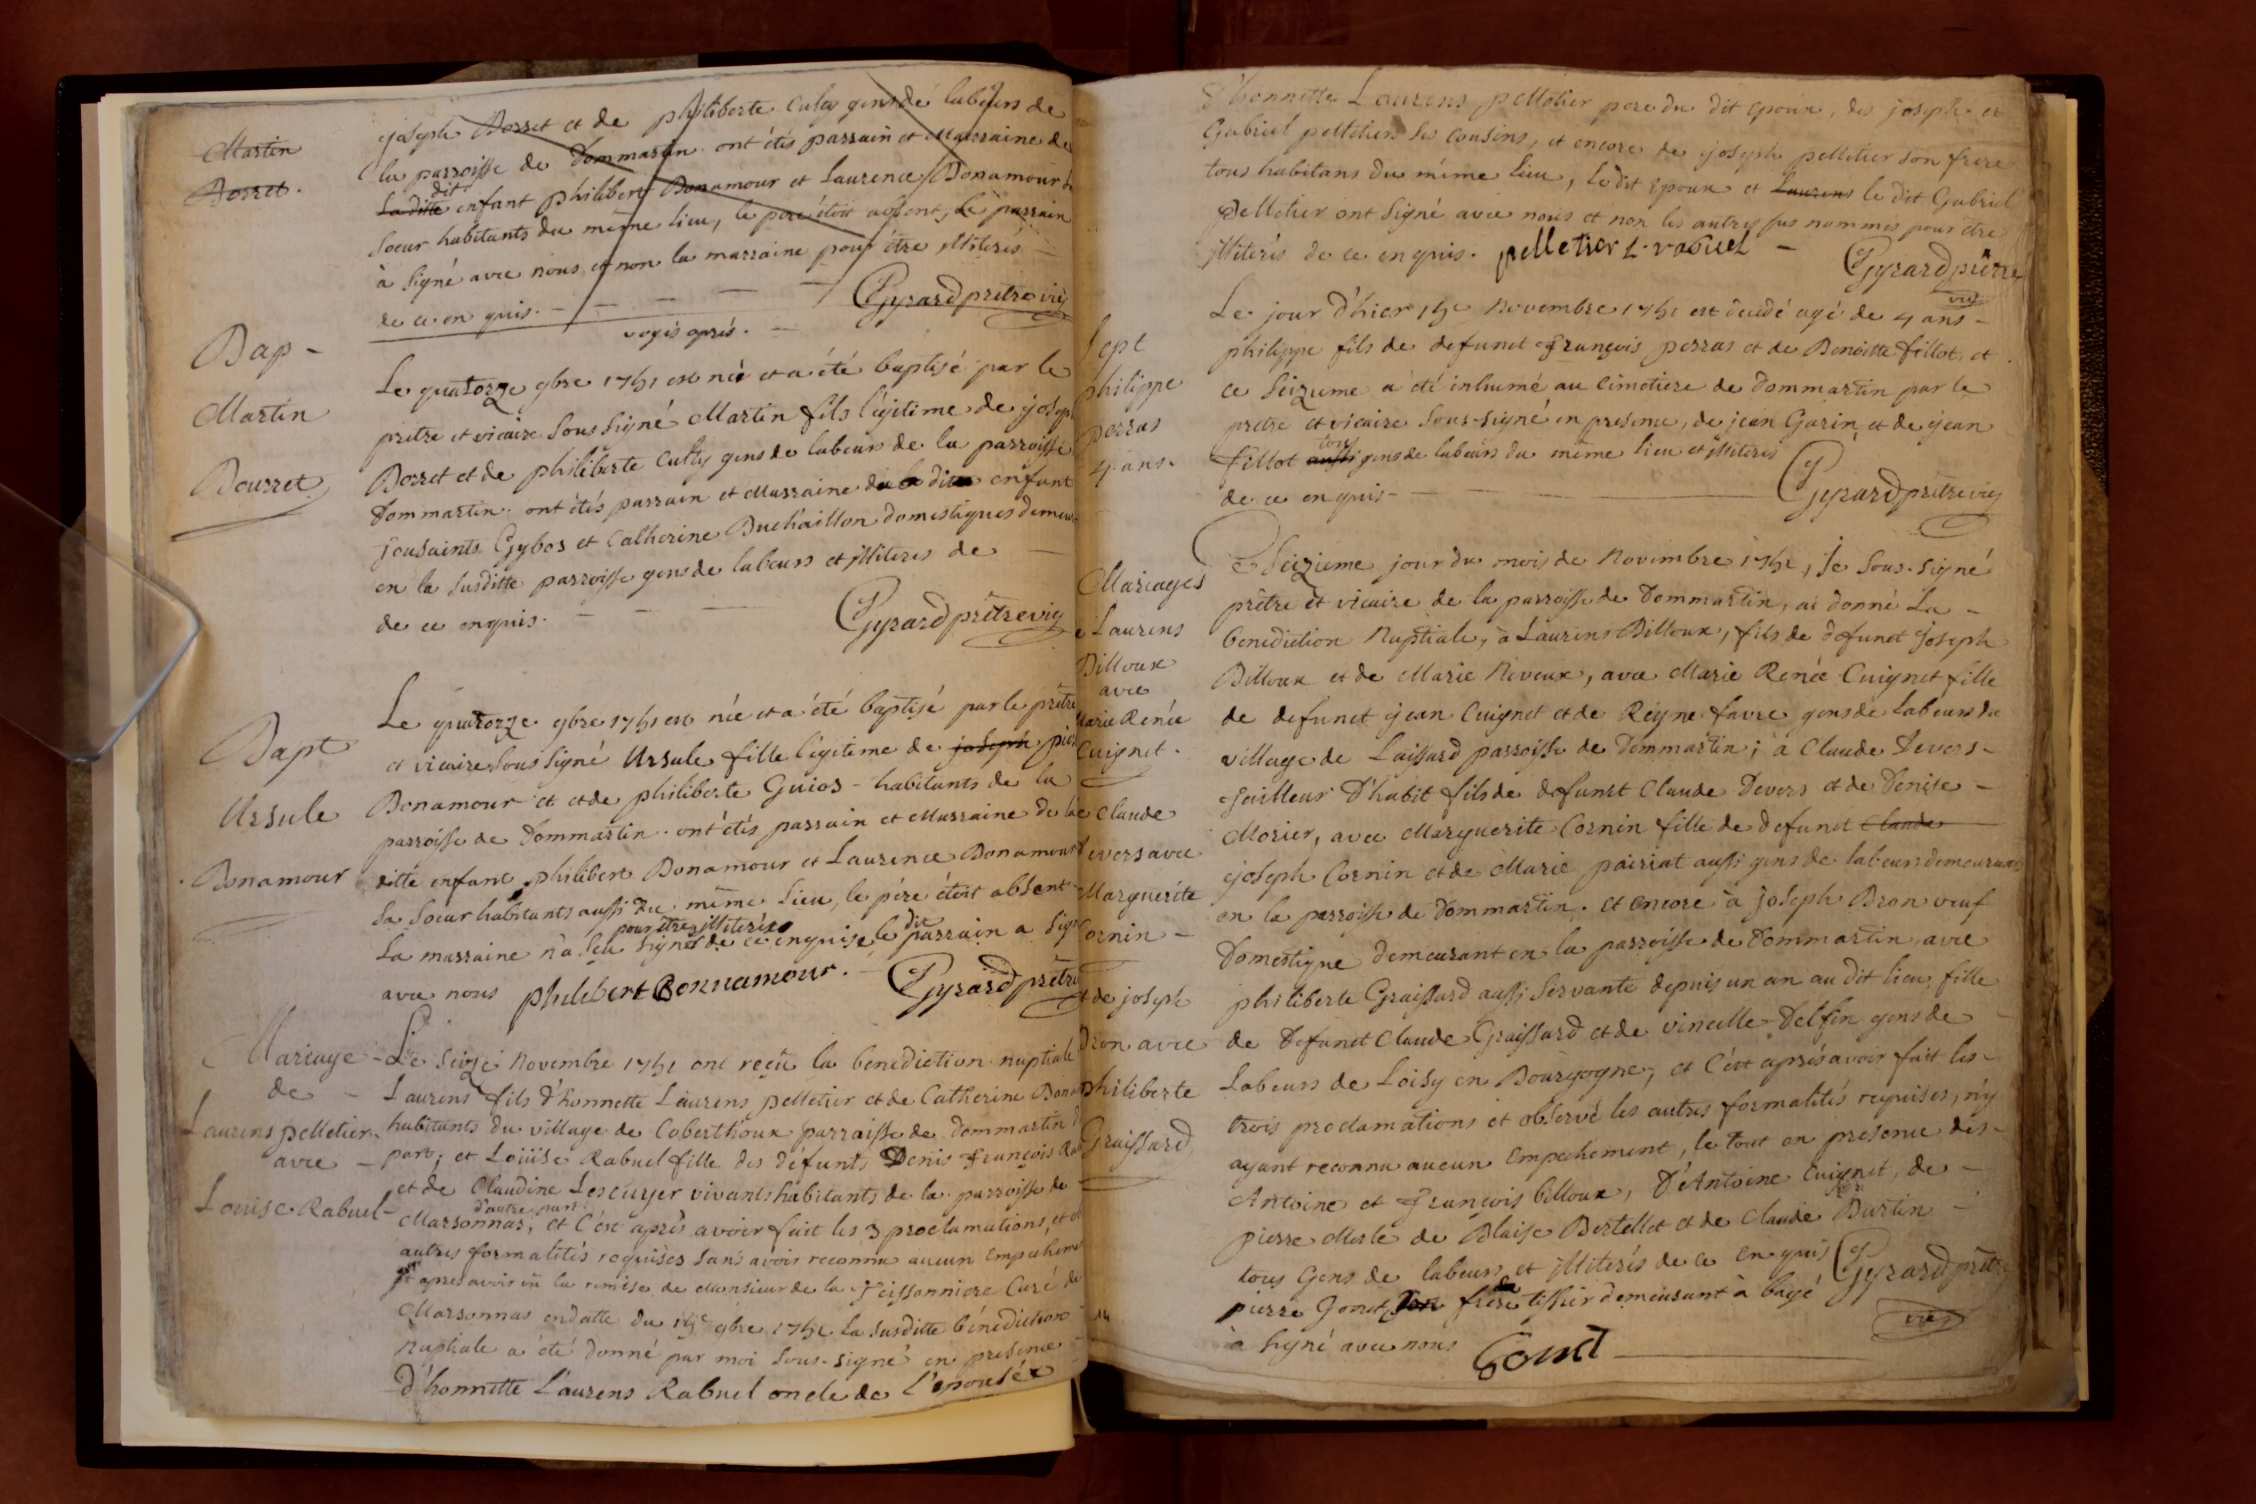 Martin
Borret.
joseph Borret et de philiberte Culty gens de labeurs de
la parroisse de Dommartin. ont étés parrain et Marraine de
La ditte dit enfant philibert Bonamour et Laurence Bonamour sa
Soeur habitants du même lieu, le pere étoit absent, le parrain
à signé avec nous et non la marraine pour être illiterés
de ce enquis. Gyrard prêtre vic
voyés après.
Bap -
Martin
Bourret
Le quatorze 9bre 1751 est né et a été baptisé par le
prêtre et vicaire Soussigné Martin fils légitime de joseph
Borret et de philiberte Culty gens de labeurs de la parroisse
Dommartin. ont étés parrain et Marraine du dit enfant
jousaints Gybos et Catherine Duchaillon domestiques demeur
en la susditte parroisse gens de labeurs et illiteres de
de ce enquis. Gyrard prêtre vic
Bapt
Ursule
Bonamour
Le quatorze 9bre 1751 est née et a été baptisé par le prêtre
et vicaire Sous signé Ursule fille légitime de joseph pier
Bonamour et et de philiberte Guios - habitants de la
parroisse de Dommartin. ont étés parrain et Marraine de la
ditte enfant philibert Bonamour et Laurence Bonamour
Sa Soeur habitants aussi du même lieu, le père étoit absent
pour être illiterée
La marraine n'a sçu signer de ce enquise, le dit parrain a signé
avec nous philibert Bonnamour. Gyrard prêtre
Mariage
de
Laurens pelletier
avec
Louise Rabuel
Le Seize Novembre 1751 ont reçu la benediction nuptiale
Laurens fils d'honnette Laurens pelletier et de Catherine Bonam
habitants du village de Coberthoux parraisse de Dommartin d
part; et Loüise Rabuel fille des défunts Denis françois Rab
et de Claudine Lescuyer vivants habitants de la parroisse de
d'autre part
Marsonnas; et C'est après avoir fait les 3 proclamations, et
autres formalités requises sans avoir reconnu aucun Empechemt
et apres avoir eü la remise de Monsieur de la Teissonniere Curé de
Marsonnas en datte du 15e 9bre 1751 La susditte bénédiction
Nuptiale a été donné par moi sous-signé en presence
d'honnette Laurens Rabuel oncle de l'épousée
d'honnette Laurens pelletier pere du dit epoux, des joseph et
Gabriel pelletier ses cousins, et encore de joseph pelletier son frere
tous habitans du même lieu, le dit Epoux et Laurens le dit Gabriel
pelletier ont signé avec nous et non les autres sus nommés pour être
illiterés de ce enquis. pelletier L. rabuel - Gyrard prêtre
vic
Sept
philippe
perras
4 ans.
Le jour d'hier 15e Novembre 1751 est decedé agé de 4 ans -
philippe fils de defunct françois perras et de Benoitte fillot, et
ce Seizieme a été inhumé au Cimetiere de Dommartin par le
prêtre et vicaire Sous-signé en presence, de jean Garin, et de jean
fillot aussi tous gens de labeurs du même lieu et illiteres
de ce enquis - Gyrard prêtre vic
Mariages
de Laurens
Billoux
avec
Marie Renée
Cuignet.
de Claude
Devers avec
Marguerite
Cornin -
et de joseph
Bron avec
philiberte
Graissard
Ce Seizieme jour du mois de Novembre 1751, Je Sous-signé
prêtre et vicaire de la parroisse de Dommartin, ai donné La -
benediction Nuptiale, à Laurens Billoux, fils de defunct joseph
Billoux et de Marie Neveux, avec Marie Renée Cuignet fille
de defunct jean Cuignet et de Reyne favre gens de labeurs du
village de Laissard parroisse de Dommartin; à Claude Devers -
Tailleur d'habit fils de defunct Claude Devers et de Denise -
Morier, avec Marguerite Cornin fille de defunct Claude
joseph Cornin et de Marie pairiat aussi gens de labeurs demeurants
en la parroisse de Dommartin. et encore à joseph Bron veuf
Domestique demeurant en la parroisse de Dommartin, avec
philiberte Graissard aussi Servante depuis un an au dit lieu, fille
de Defunct Claude Graissard et de vincelle Delfin gens de
Labeurs de Loisy en Bourgogne, et C'est après avoir fait les -
trois proclamations et observé les autres formalités requises, n'y
ayant reconnu aucun Empechement, le tout en presence des -
Antoine et françois billoux, d'Antoine Cuignet, de -
pierre Merle de Blaise Bertellet et de Claude Burtin -
tous Gens de labeurs et illiterés de ce Enquis Gyrard prêtre
pierre Gonet, frère tissier demeurant à bagé vic
à signé avec nous Gonet